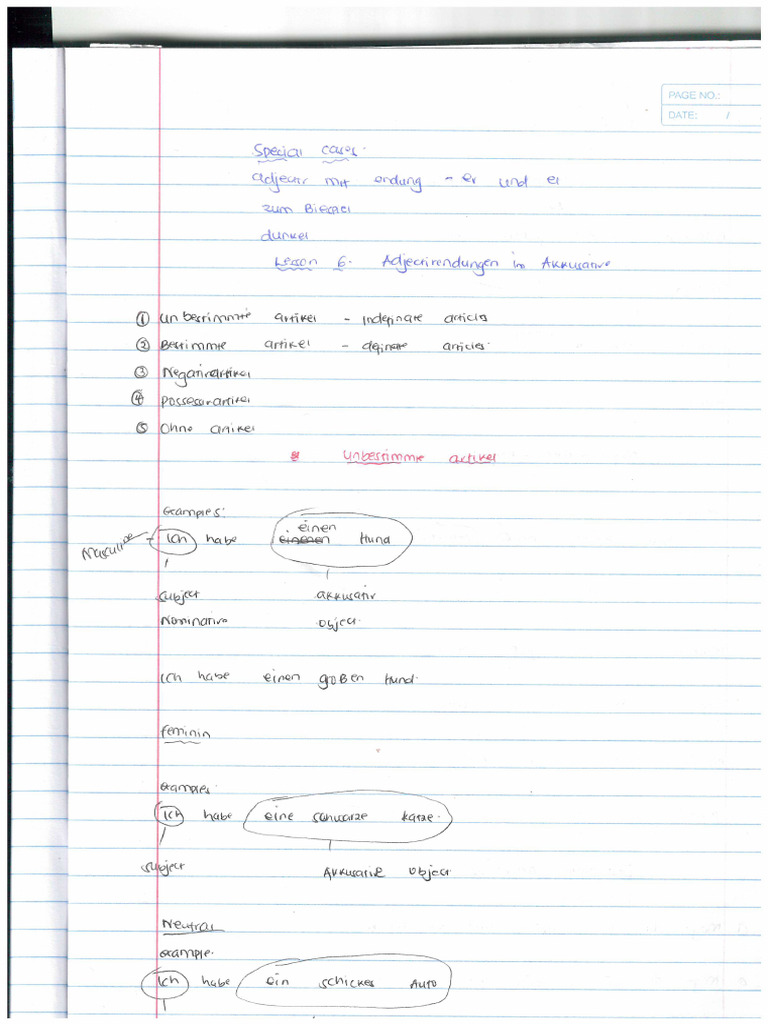 PAGE NO.:
DATE: /
Special cases.
adjectiv mit endung - er und el
zum Biespiel
dunkel
Lesson 6. Adjectivendungen im Akkusative
① unbestimmte artikel - Indefinate articles
② Bestimmte artikel - definate articles
③ Negativeartikel
④ possessivartikel
⑤ Ohne artikel
unbestimmte artikel
Examples:
einen
Masculine - Ich habe Hund
subject akkusativ
Nominativ object
Ich habe einen großen Hund.
feminin
Examples
Ich habe eine schwarze Katze.
subject Akkusative object
Neutral
example.
Ich habe ein schickes Auto